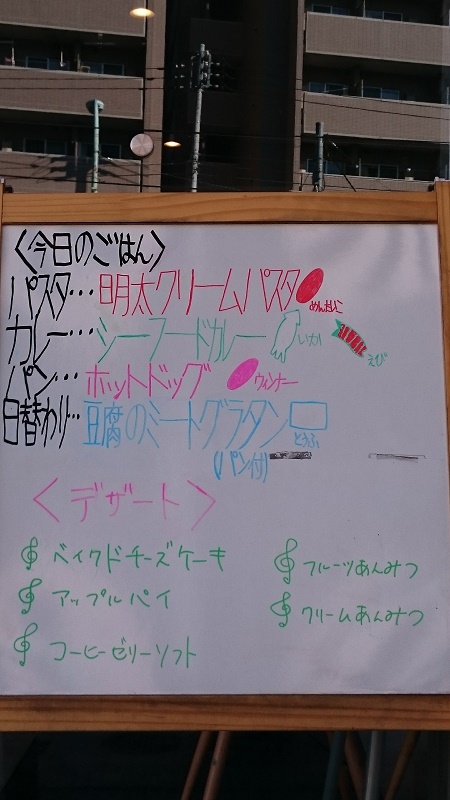 〈今日のごはん〉
パスタ…明太クリームパスタ めんたいこ
カレー…シーフードカレー いか えび
パン…ホットドッグ ウィンナー
日替わり…豆腐のミートグラタン とうふ
(パン付)
〈デザート〉
ベイクドチーズケーキ
アップルパイ
コーヒーゼリーソフト
フルーツあんみつ
クリームあんみつ